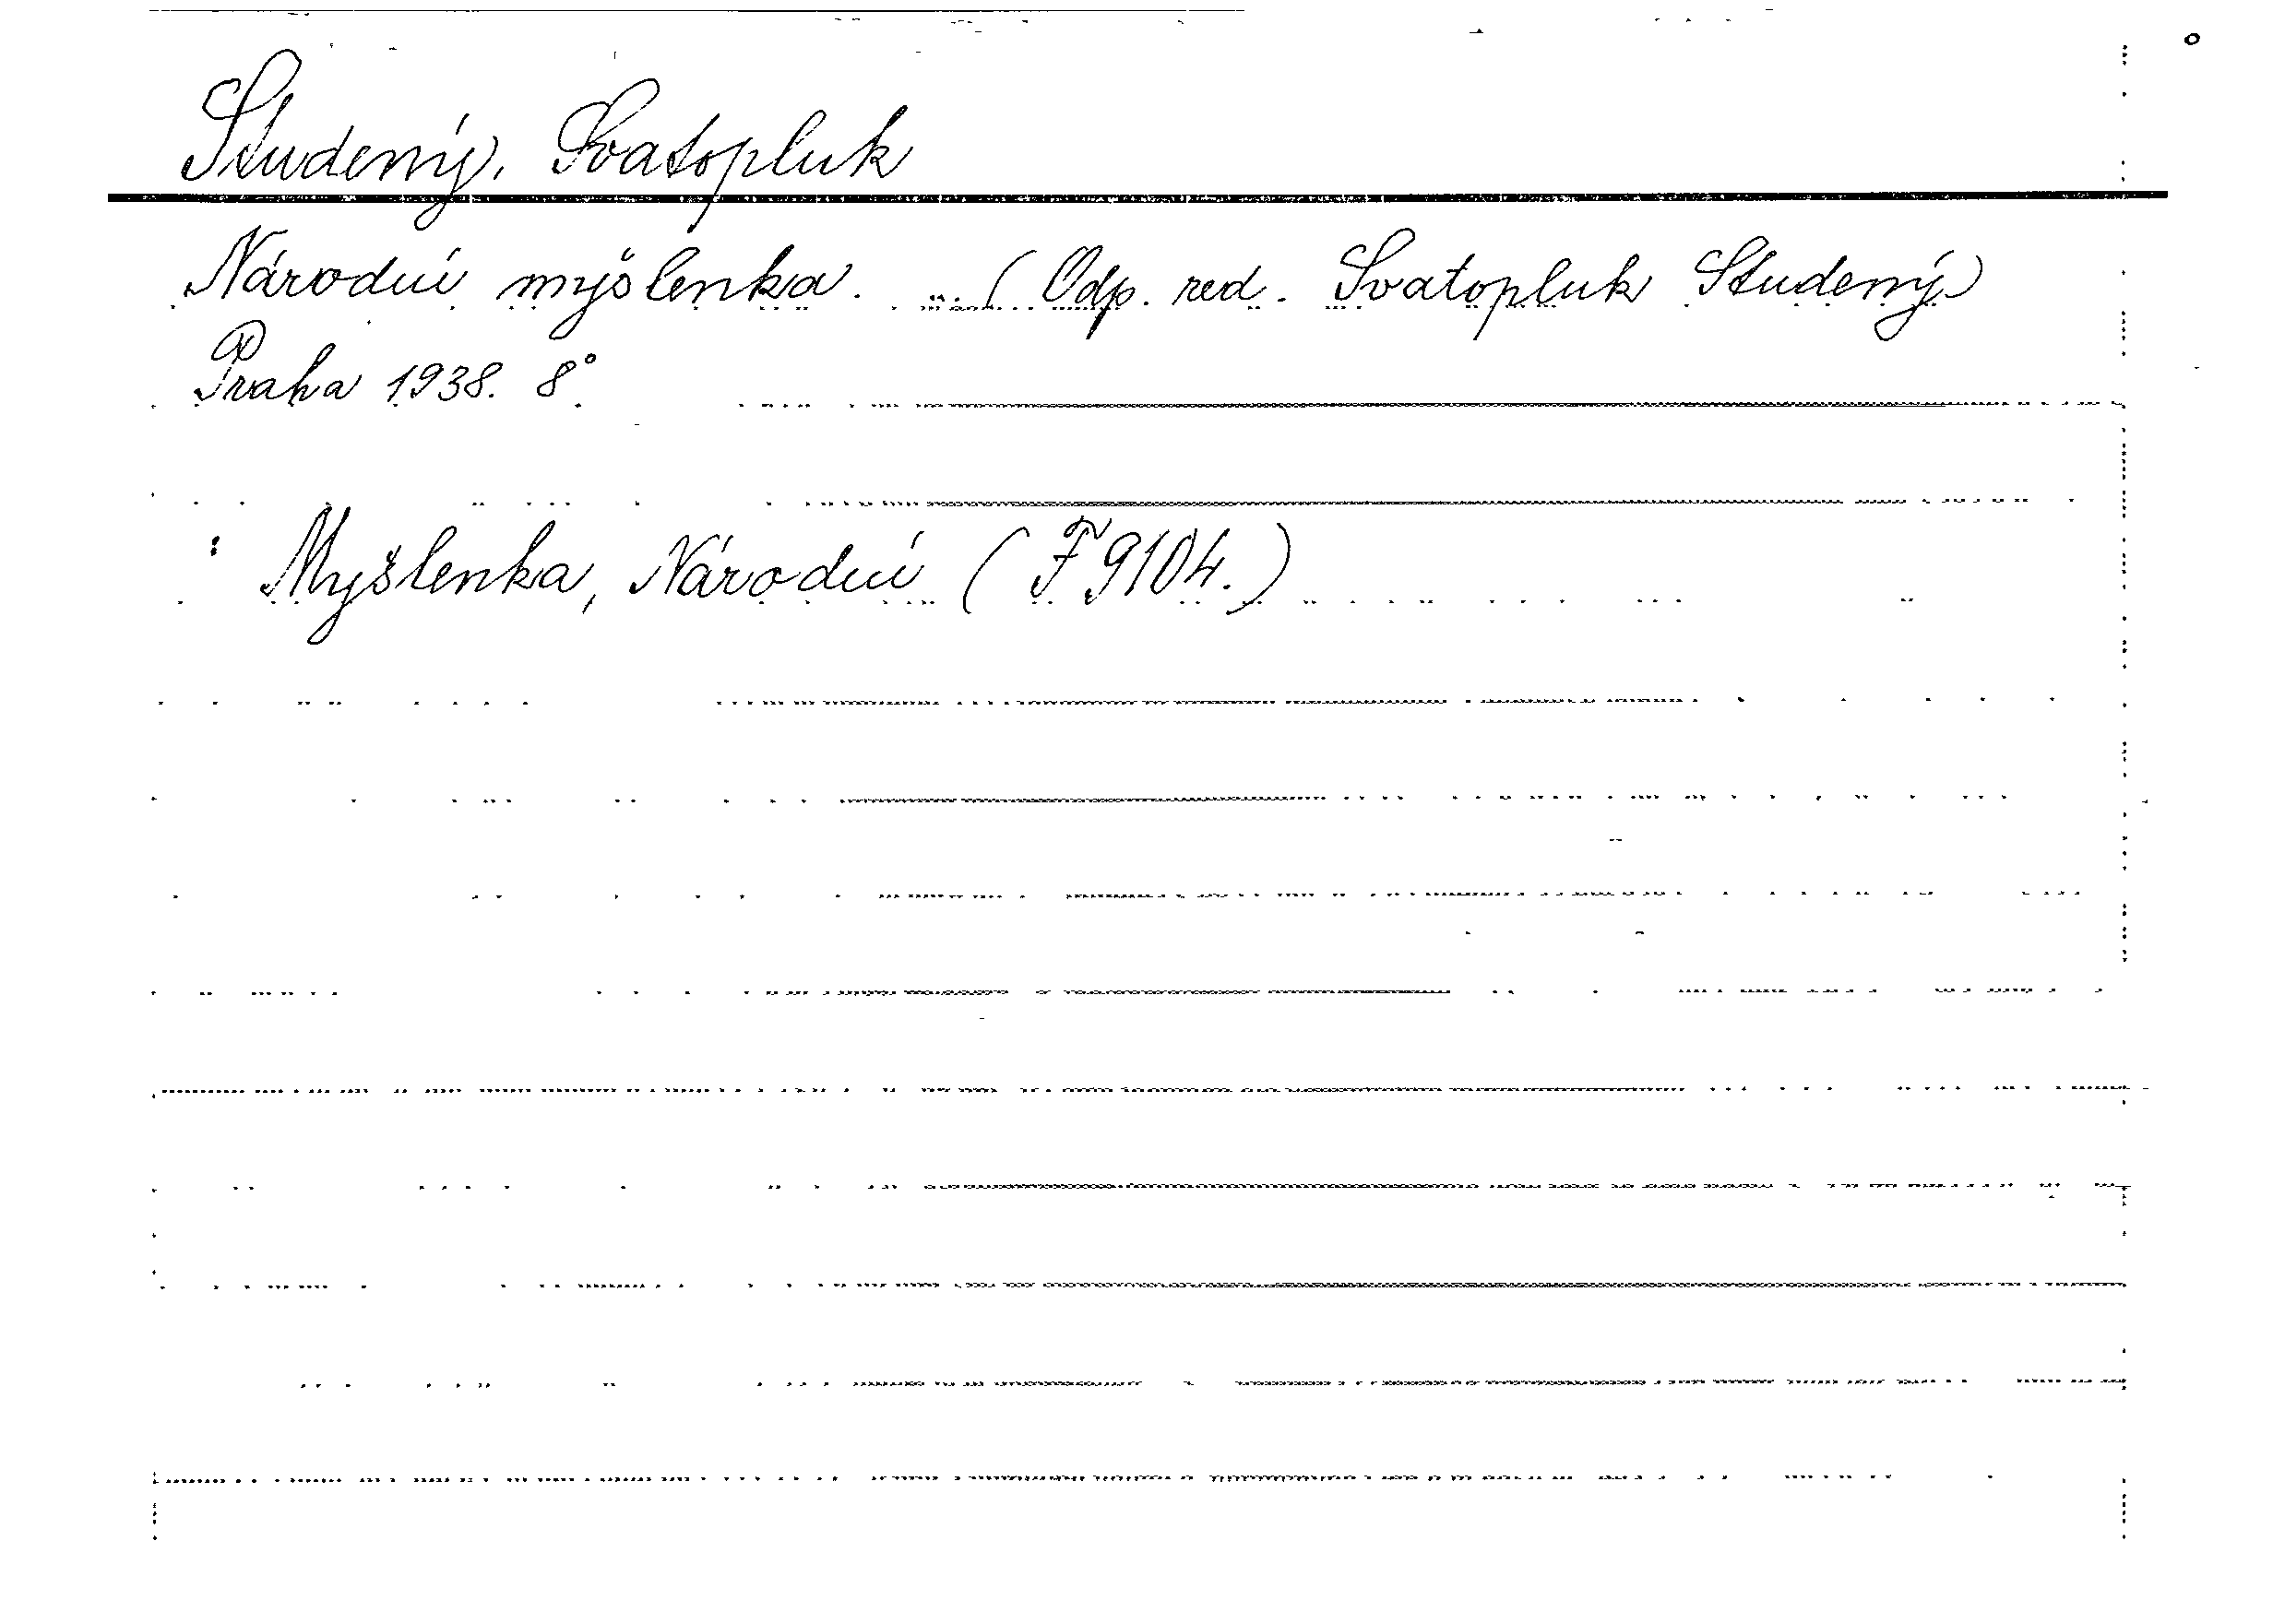 Studený, Svatopluk
Národní myšlenka. ... (Odp. red. Svatopluk Studený)
Praha 1938. 8°
: Myšlenka, Národní (F 9104.)